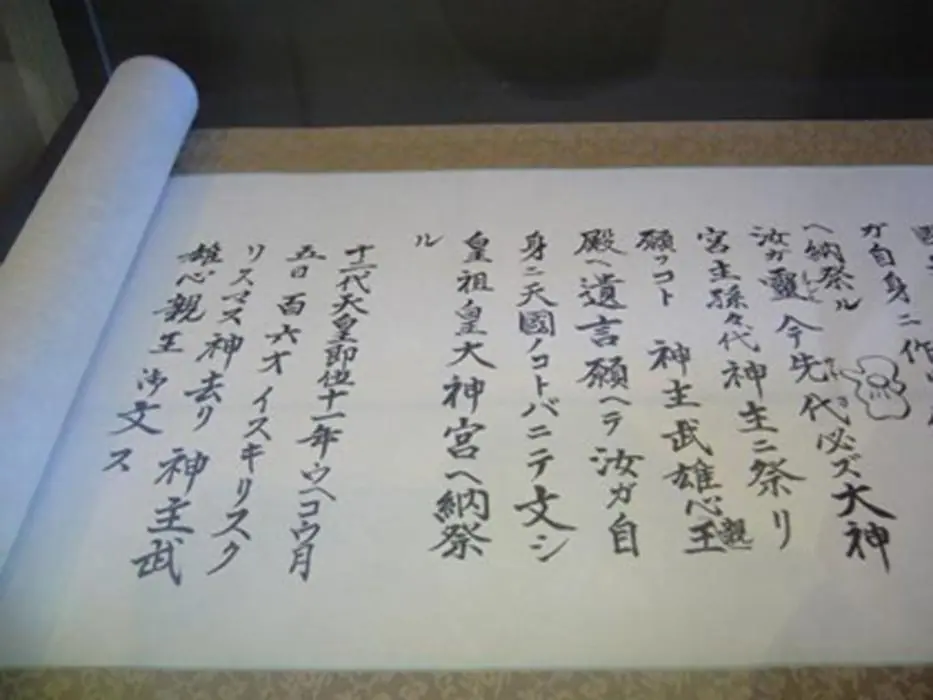 ガ自身ニ作
ヘ納祭ル
汝ガ靈今先代必ズ大神
宮主孫々代神主ニ祭リ
願フコト 神主武雄心親王
殿ヘ遺言願ヘラ汝ガ自
身ニ天國ノコトバニテ文シ
皇祖皇大神宮ヘ納祭
ル
十一代天皇即位十一年ウヘコウ月
五日 百六才 イスキリスク
リスマス神去リ 神主武
雄心親王 御文ス